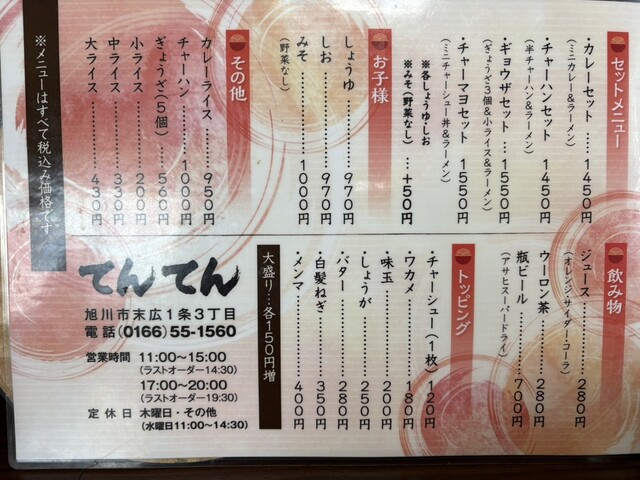 セットメニュー
・カレーセット……1450円
(ミニカレー&ラーメン)
・チャーハンセット……1450円
(半チャーハン&ラーメン)
・ギョウザセット…1550円
(ぎょうざ3個&小ライス&ラーメン)
・チャーマヨセット…1550円
(ミニチャーシュー丼&ラーメン)
※各しょうゆ・しお
※みそ(野菜なし)…+50円
お子様
しょうゆ……970円
しお……970円
みそ……1000円
(野菜なし)
その他
カレーライス……950円
チャーハン……1000円
ぎょうざ(5個)……560円
小ライス……200円
中ライス……330円
大ライス……430円
※メニューはすべて税込み価格です
飲み物
ジュース……280円
(オレンジ・サイダー・コーラ)
ウーロン茶……280円
瓶ビール……700円
(アサヒスーパードライ)
トッピング
・チャーシュー(1枚)120円
・ワカメ……180円
・味玉……200円
・しょうが……250円
・バター……280円
・白髪ねぎ……350円
・メンマ……400円
大盛り…各150円増
てんてん
旭川市末広1条3丁目
電話(0166)55-1560
営業時間 11:00～15:00
(ラストオーダー14:30)
17:00～20:00
(ラストオーダー19:30)
定休日 木曜日・その他
(水曜日11:00～14:30)